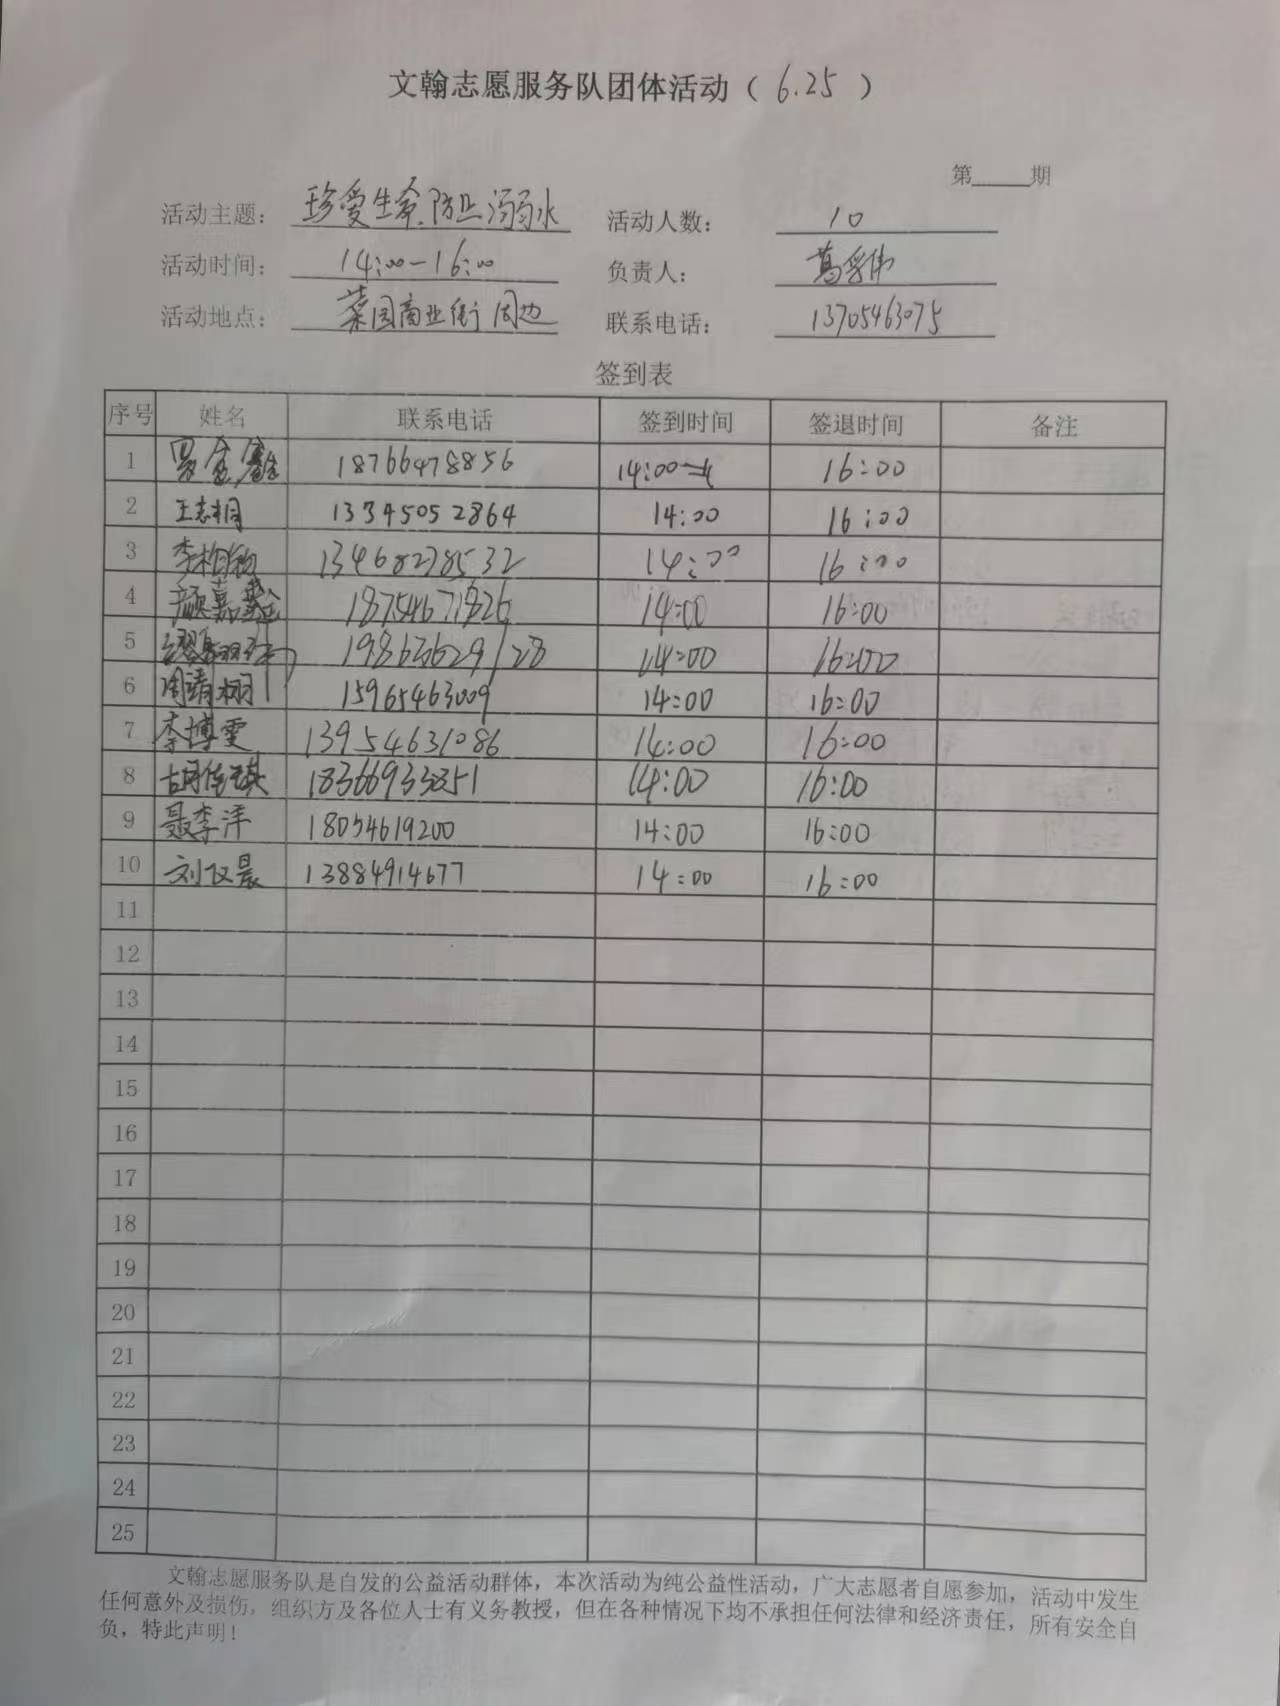 文翰志愿服务队团体活动（ 6.25 ）
第____期
活动主题： 珍爱生命.防止溺水 活动人数： 10
活动时间： 14:00-16:00 负责人：
活动地点： 菜园商业街周边 联系电话： 13705463075
签到表
序号 姓名 联系电话 签到时间 签退时间 备注
1 18766478856 14:00 16:00
2 王志桐 13345052864 14:00 16:00
3 13468278532 14:00 16:00
4 颜嘉 18754671826 14:00 16:00
5 19863629128 14:00 16:00
6 周靖栩 15965463009 14:00 16:00
7 李博雯 13954631086 14:00 16:00
8 胡佳琪 18366933851 14:00 16:00
9 聂李洋 18054619200 14:00 16:00
10 刘仪晨 13884914677 14:00 16:00
11
12
13
14
15
16
17
18
19
20
21
22
23
24
25
文翰志愿服务队是自发的公益活动群体，本次活动为纯公益性活动，广大志愿者自愿参加，活动中发生
任何意外及损伤，组织方及各位人士有义务教授，但在各种情况下均不承担任何法律和经济责任，所有安全自
负，特此声明！